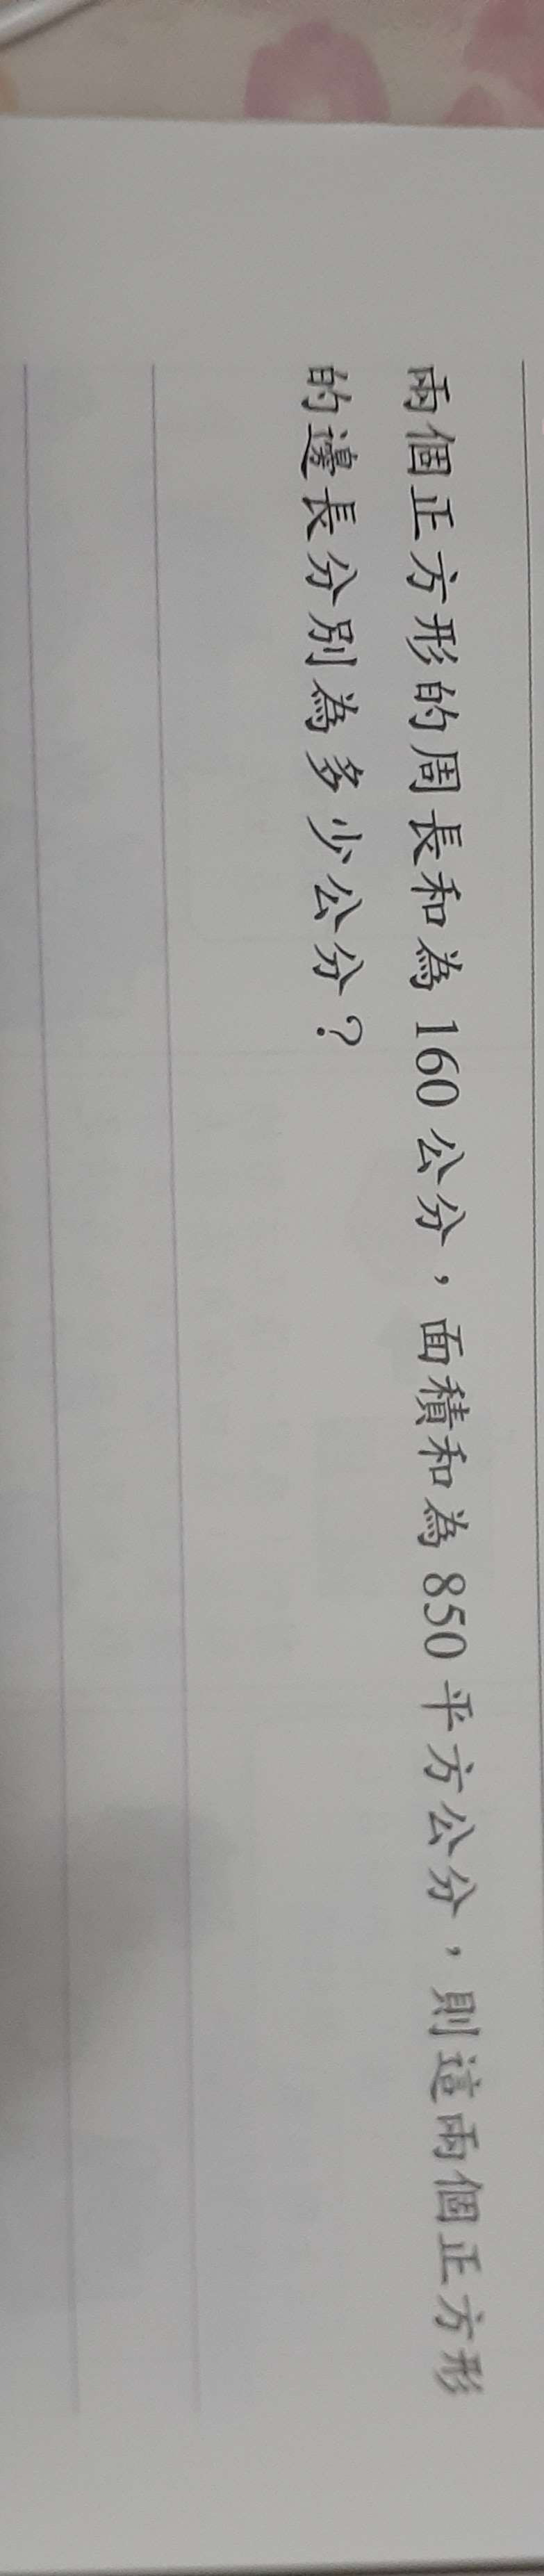 兩個正方形的周長和為160公分，面積和為850平方公分，則這兩個正方形
的邊長分別為多少公分？